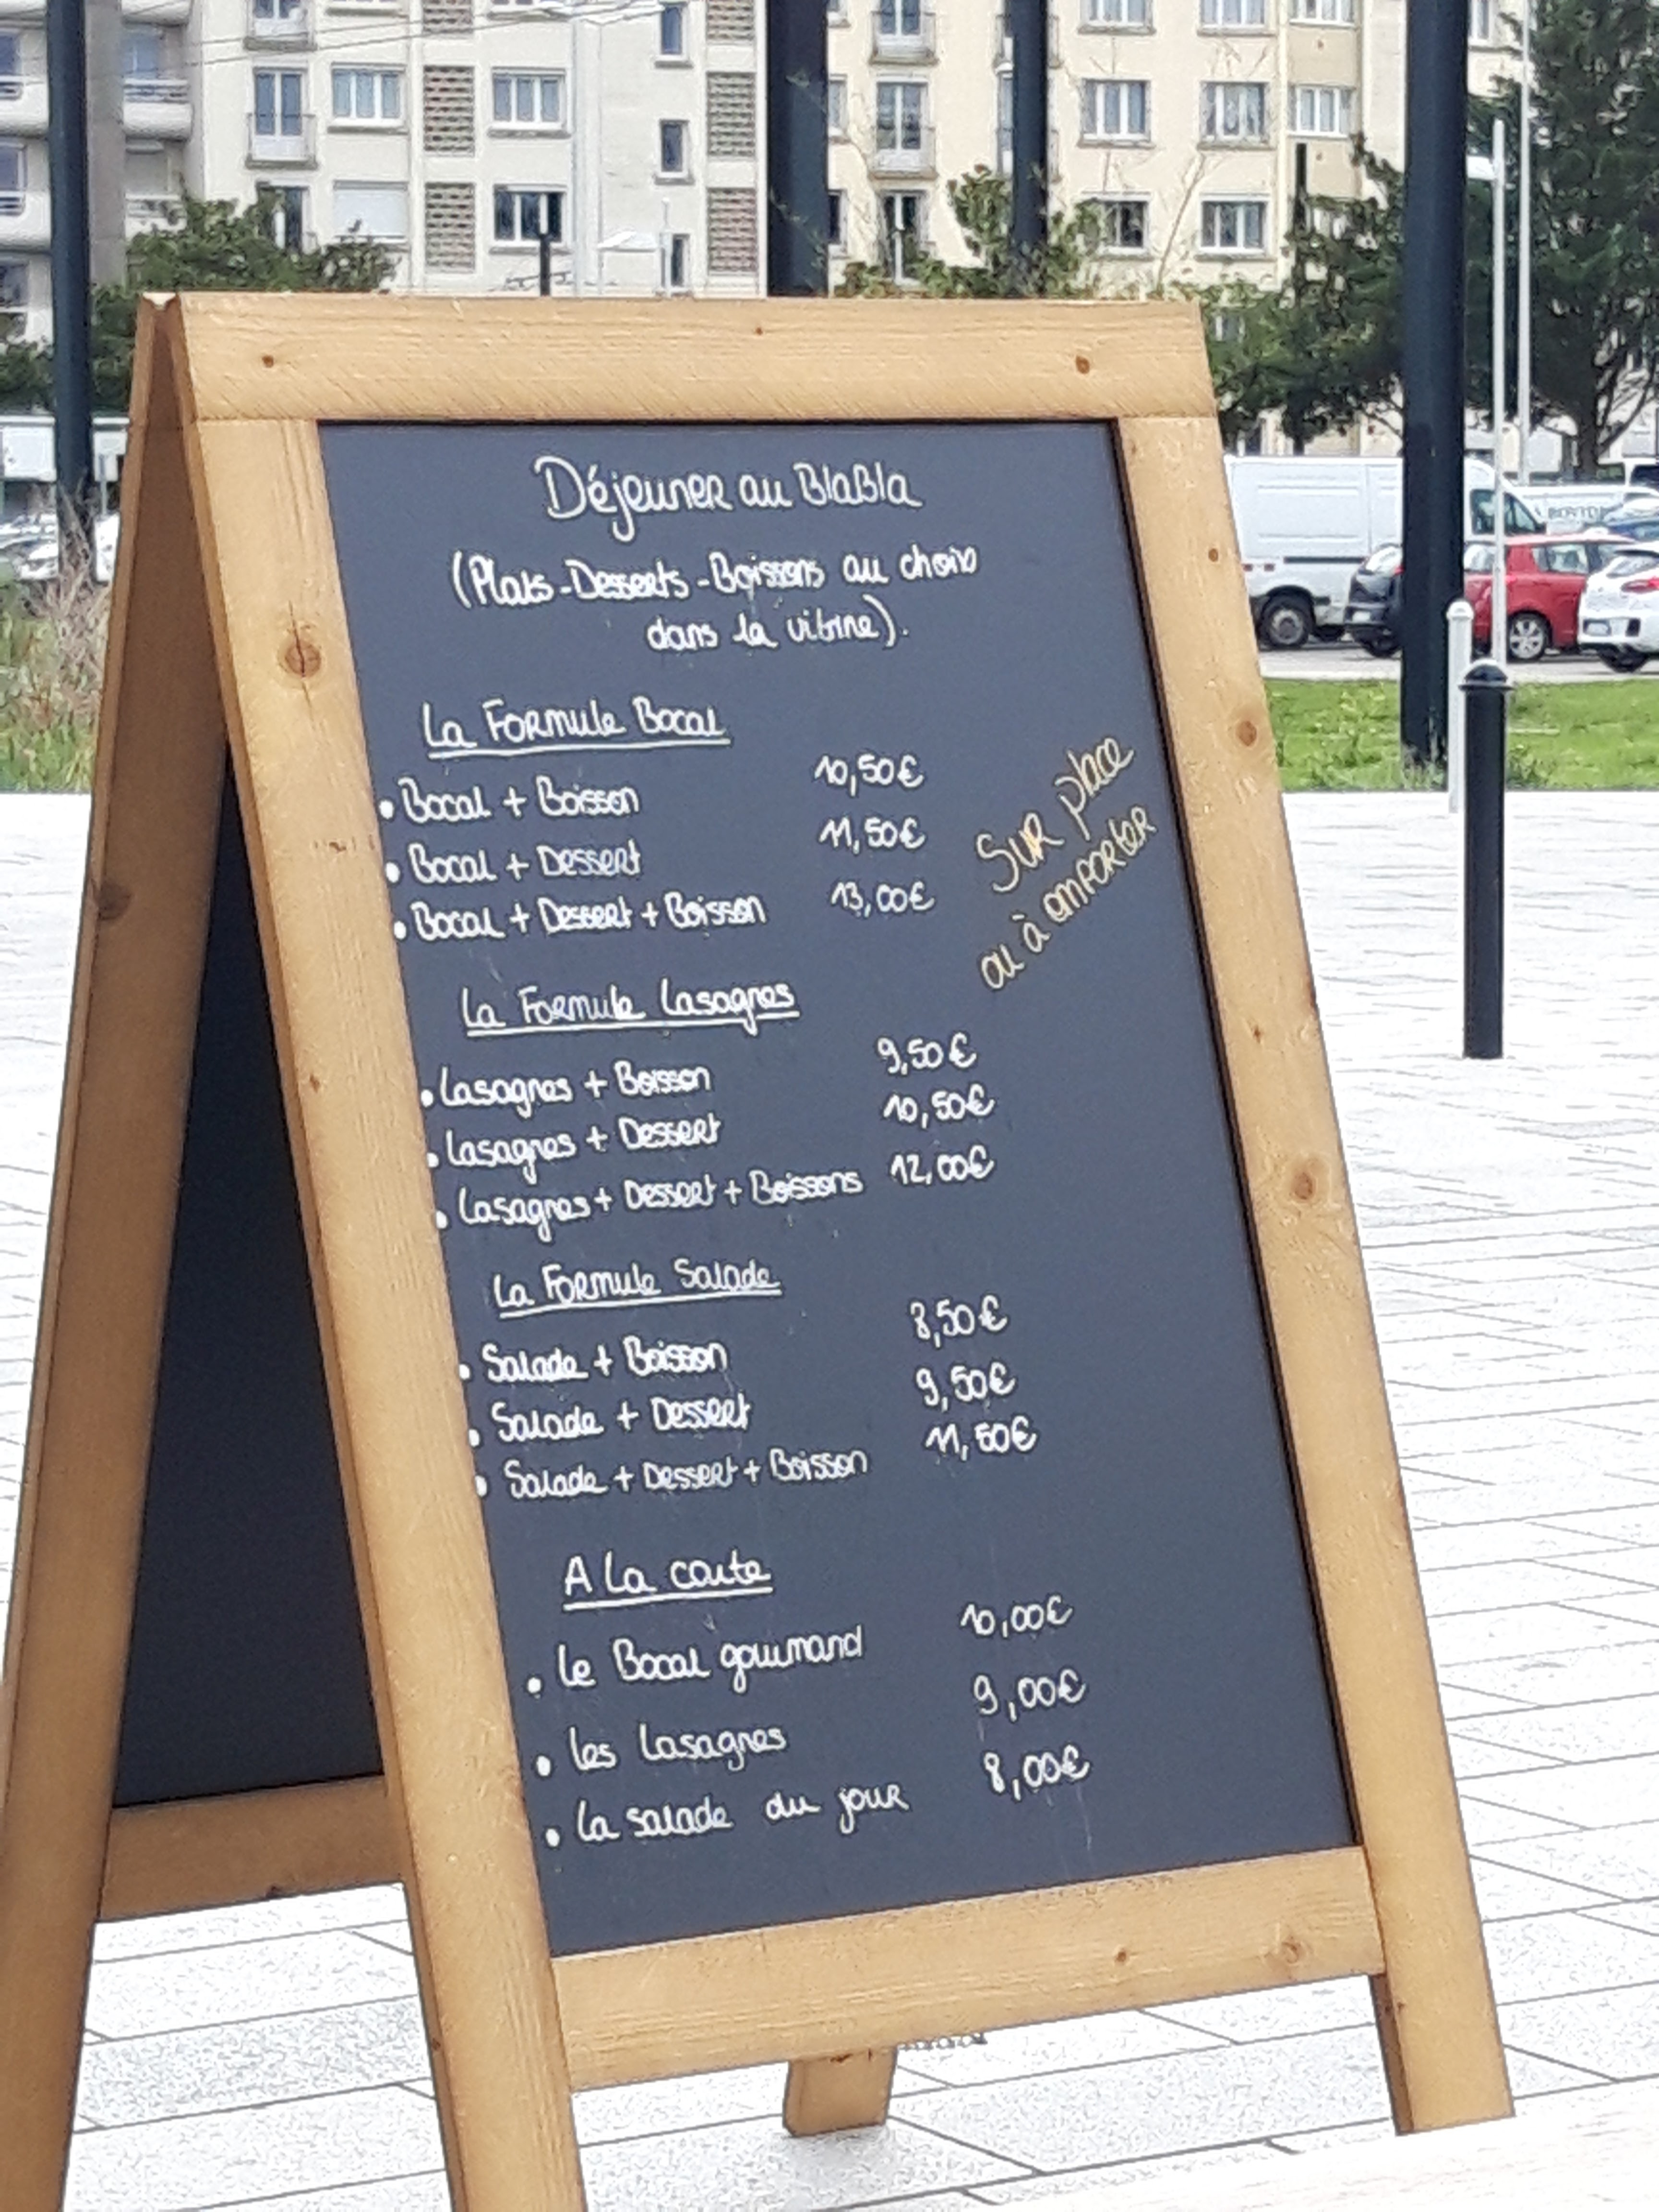 Déjeuner au BlaBla
(Plats-Desserts-Boissons au choix
dans la vitrine).
La Formule Bocal
• Bocal + Boisson 10,50€
• Bocal + Dessert 11,50€
• Bocal + Dessert + Boisson 13,00€
Sur place
ou à emporter
La Formule Lasagnes
• Lasagnes + Boisson 9,50€
• Lasagnes + Dessert 10,50€
• Lasagnes + Dessert + Boissons 12,00€
La Formule Salade
• Salade + Boisson 8,50€
• Salade + Dessert 9,50€
• Salade + Dessert + Boisson 11,50€
A La carte
• Le Bocal gourmand 10,00€
• Les Lasagnes 9,00€
• La salade du jour 8,00€